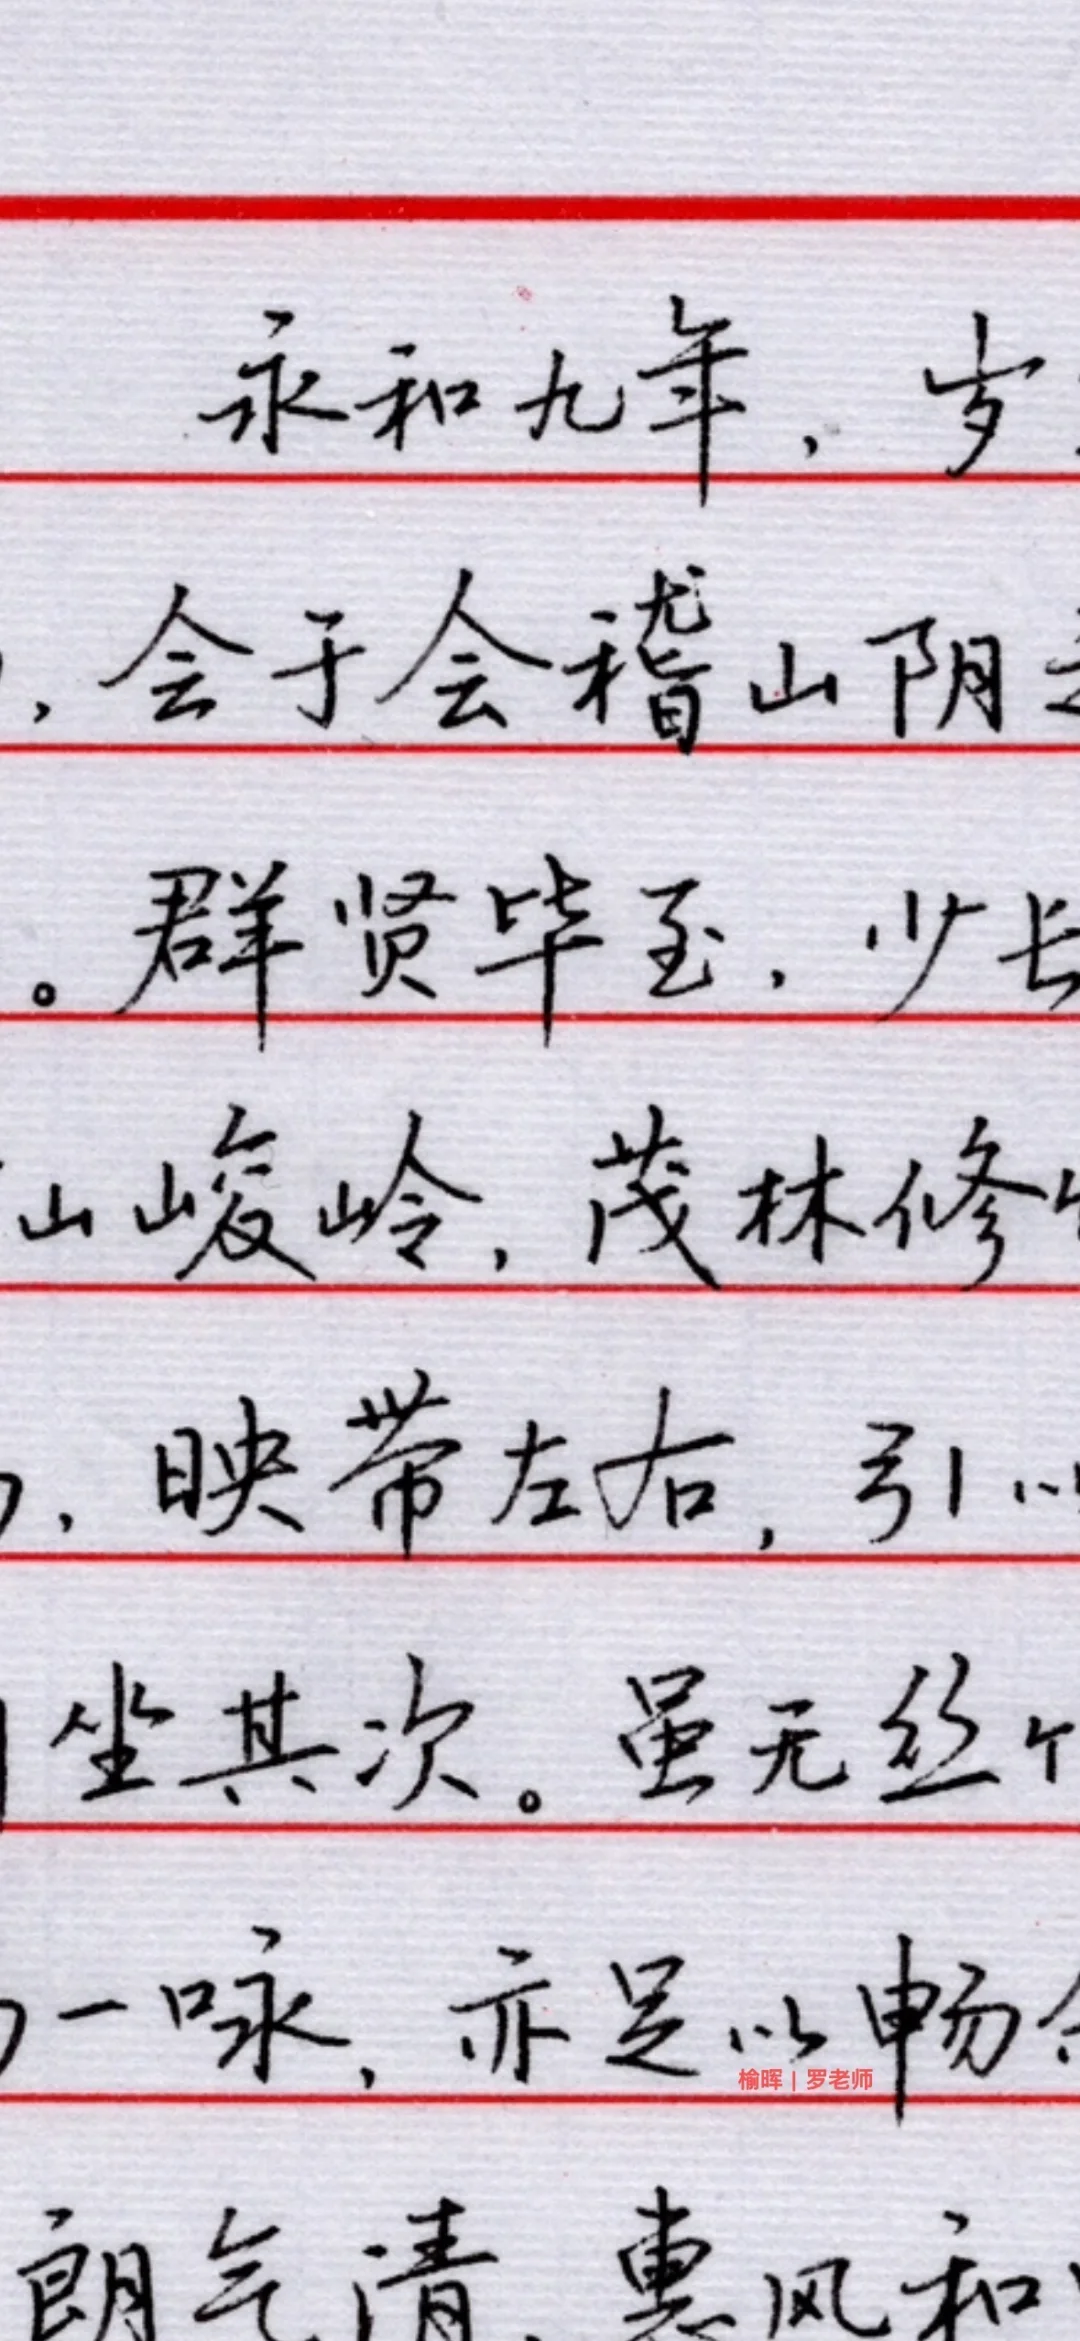 永和九年，岁
，会于会稽山阴
。群贤毕至，少长
山峻岭，茂林修
，映带左右，引以
坐其次。虽无丝
一咏，亦足以畅
榆晖 | 罗老师
朗气清，惠风和